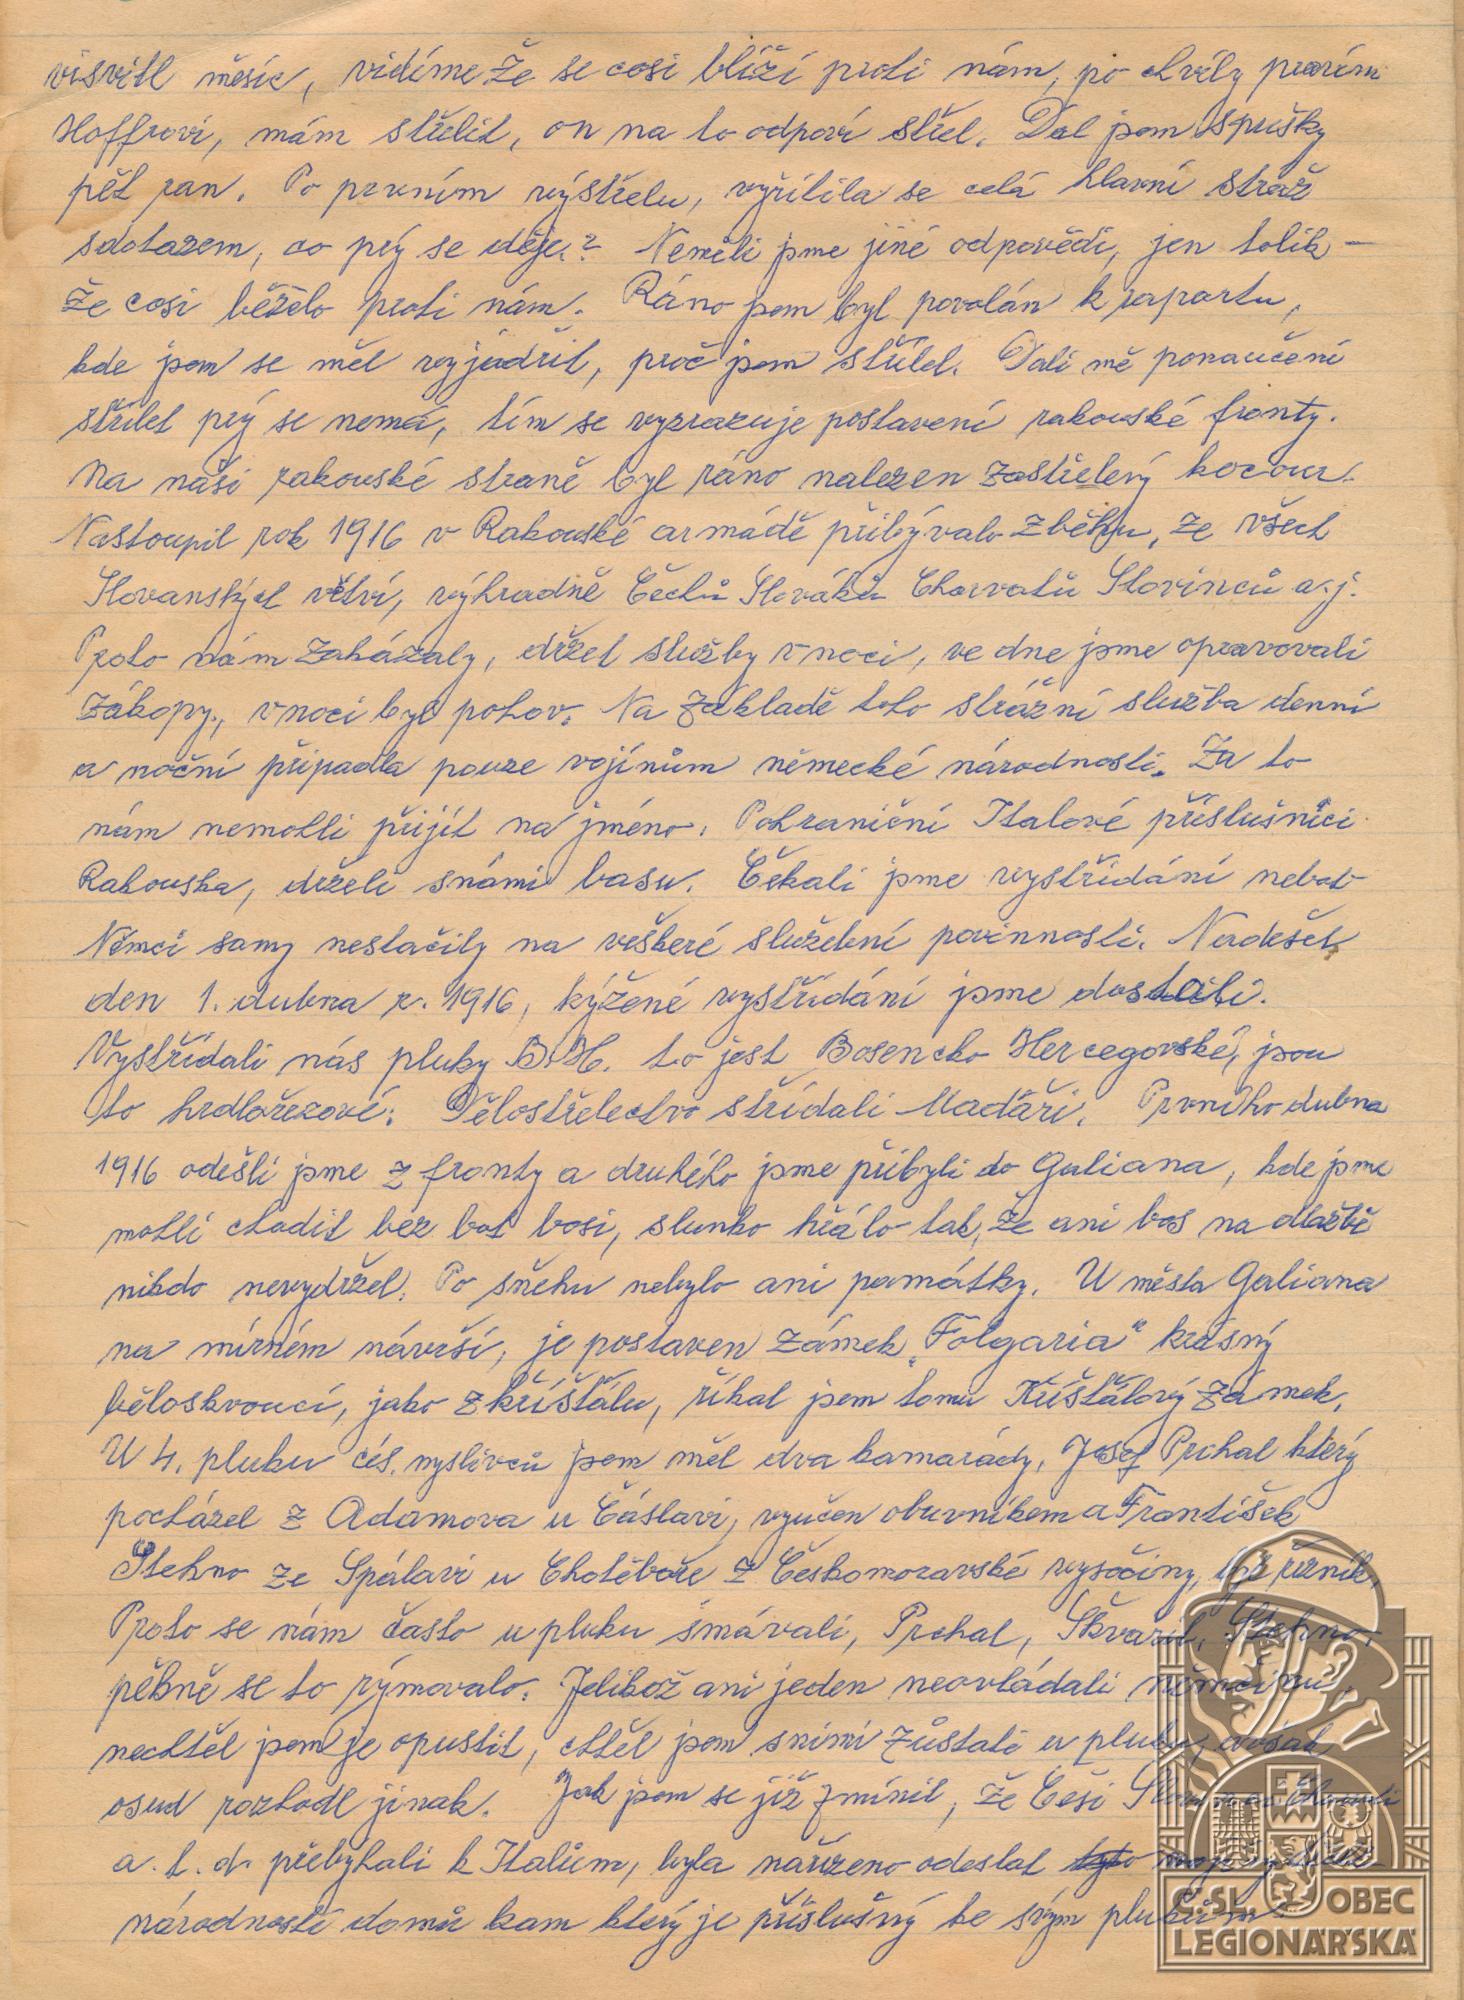 visvitl měsíc, vidíme že se cosi blíží proti nám, po chvíly pravím
Hoffrovi, mám střílit, on na to odpoví střel. Dal jsem spušky
pět ran. Po prvním výstřelu, vyřítila se celá hlavní stráž
sdotazem, co prý se děje.? Neměli jsme jiné odpovědi, jen tolik –
že cosi běželo proti nám. Ráno jsem byl povolán k raportu,
kde jsem se měl vyjádřit, proč jsem střílel. Dali mě ponaučení
střílet prý se nemá, tím se vyzrazuje postavení rakouské fronty.
Na naší rakouské straně byl ráno nalezen zastřelený kocour.
Nastoupil rok 1916 v Rakouské armádě přibývalo zběhu, ze všech
Slovanských větví, výhradně Čechů Slováků Charvatů Slovinců a.j.
Proto nám zakázaly, držet služby vnoci, ve dne jsme opravovali
zákopy, vnoci byl pohov. Na základě toho strážní služba denní
a noční připadla pouze vojínům německé národnosti. Za to
nám nemohli přijít na jméno. Pohraniční Italové příslušníci
Rakouska, drželi snámi basu. Čekali jsme vystřídání nebot
Němci samy nestačily na veškeré služební povinnosti. Nadešel
den 1. dubna r. 1916, kýžené vystřídání jsme dostali.
Vystřídali nás pluky B.H. to jest Bosencko Hercegovské, jsou
to hrdlořezové. Dělostřelectvo střídali Maďáři. Prvního dubna
1916 odešli jsme z fronty a druhého jsme přibyli do Galiana, kde jsme
mohli chodit bez bot bosi, slunko hřálo tak, že ani bos na dlažbě
nikdo nevydržel. Po sněhu nebylo ani památky. U města Galiana
na mírném návrší, je postaven zámek „Folgaria" krásný
běloskvoucí, jako z kříštálu, říkal jsem tomu Kříšťálový zámek.
U 4. pluku cís. myslivců jsem měl dva kamarády, Josef Prchal který
pocházel z Adamova u Čáslavi, vyučen obuvníkem a František
Stehno ze Spálavi u Chotěboře z Českomoravské vysočiny, též řezník.
Proto se nám často u pluku smávali, Prchal, Škvařil, Stehno,
pěkně se to rýmovalo. Jelikož ani jeden neovládali němčinu,
nechtěl jsem je opustit, chtěl jsem snimi zůstati u pluku, avšak
osud rozhodl jinak. Jak jsem se již zmínil, že Češi Slováci Charvati
a.t.d. přebýhali k Italům, byla nařízeno odeslat vojíny
národnosti domů kam který je příslušný ke svým plukům
Č.SL. OBEC
LEGIONÁŘSKÁ